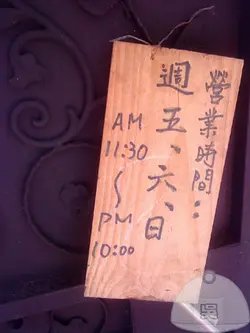 營業時間：
週五、六、日
AM
11:30
〜
PM
10:00
吳